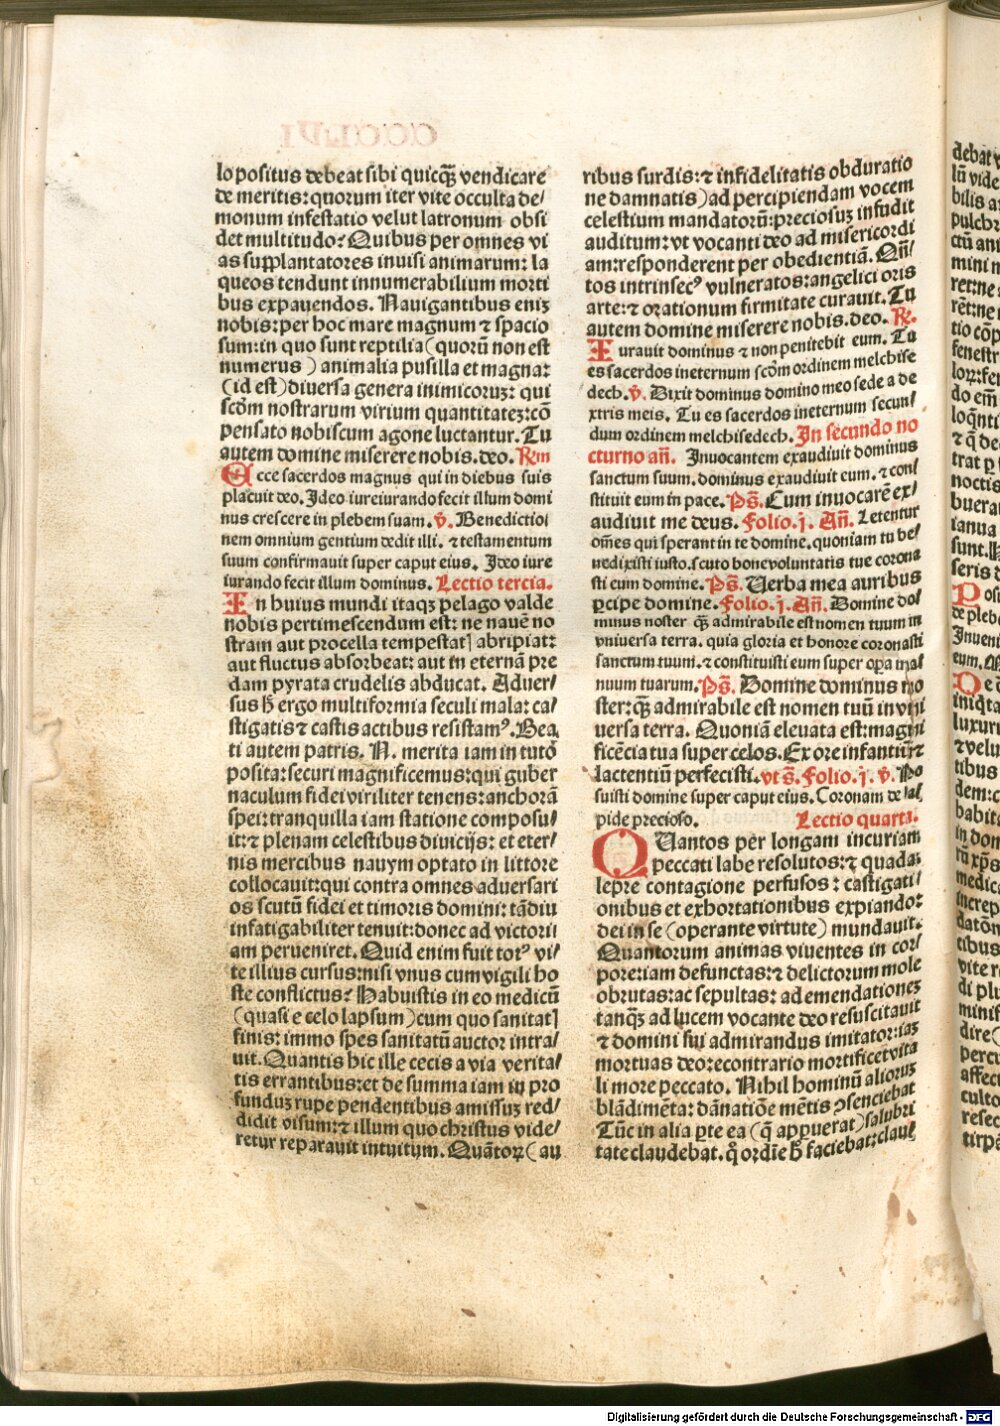 lo positus debeat sibi quicq̃ vendicare
de meritis: quorum iter vite occulta de/
monum infestatio velut latronum obsi
det multitudo? Quibus per omnes vi
as supplantatores inuisi animarum: la
queos tendunt innumerabilium morti
bus expauendos. Nauigantibus eniꝫ
nobis: per hoc mare magnum ⁊ spacio
sum: in quo sunt reptilia (quorũ non est
numerus) animalia pusilla et magna:
(id est) diuersa genera inimicoruꝫ: qui
scd̃m nostrarum virium quantitateꝫ: cõ
pensato nobiscum agone luctantur. Tu
autem domine miserere nobis. deo. Rm̃
Ecce sacerdos magnus qui in diebus suis
placuit deo. Ideo iureiurando fecit illum domi
nus crescere in plebem suam. v̾. Benedictioi
nem omnium gentium dedit illi. ⁊ testamentum
suum confirmauit super caput eius. Ideo iure
iurando fecit illum dominus. Lectio tercia.
In huius mundi itaqꝫ pelago valde
nobis pertimescendum est: ne nauẽ no
stram aut procella tempestatꝭ abripiat:
aut fluctus absorbeat: aut in eternã pre
dam pyrata crudelis abducat. Aduer/
sus h̾ ergo multiformia seculi mala: ca/
stigatis ⁊ castis actibus resistamꝰ. Bea
ti autem patris. N. merita iam in tuto
posita: securi magnificemus: qui guber
naculum fidei viriliter tenens: anchorã
spei: tranquilla iam statione composu/
it: ⁊ plenam celestibus diuicijs: et eter/
nis mercibus nauym optato in littore
collocauit: qui contra omnes aduersari
os scutũ fidei et timoris domini: tãdiu
infatigabiliter tenuit: donec ad victorii
am perueniret. Quid enim fuit totꝰ vi/
te illius cursus: nisi vnus cum vigili ho
ste conflictus? Habuistis in eo medicũ
(quasi e celo lapsum) cum quo sanitatꝭ
finis: immo spes sanitatũ auctor intra/
uit. Quantis hic ille cecis a via verita/
tis errantibus: et de summa iam in pro
funduꝫ rupe pendentibus amissuꝫ red/
didit visum: ⁊ illum quo christus vide/
retur reparauit intuitum. Quãtoꝝ (au
ribus surdis: ⁊ infidelitatis obduratio
ne damnatis) ad percipiendam vocem
celestium mandatorũ: preciosuꝫ infudit
auditum: vt vocanti deo ad misericordi
am: responderent per obedientiã. Qñ/
tos intrinsecꝰ vulneratos: angelici oris
arte: ⁊ orationum firmitate curauit. Tu
autem domine miserere nobis. deo. R̾.
Iurauit dominus ⁊ non penitebit eum. Tu
es sacerdos ineternum scd̃m ordinem melchise
dech. v̾. Dixit dominus domino meo sede a de
xtris meis. Tu es sacerdos ineternum secun/
dum ordinem melchisedech. In secundo no
cturno añ. Inuocantem exaudiuit dominus
sanctum suum. dominus exaudiuit eum. ⁊ con/
stituit eum in pace. Ps̃. Cum inuocarẽ ex/
audiuit me deus. Folio. j. Añ. Letentur
om̃es qui sperant in te domine. quoniam tu be/
nedixisti iusto. scuto bone voluntatis tue corona
sti eum domine. Ps̃. Uerba mea auribus
ꝑcipe domine. Folio. j. Añ. Domine do/
minus noster q̃ admirabile est nomen tuum in
vniuersa terra. quia gloria et honore coronasti
sanctum tuum. ⁊ constituisti eum super oꝑa ma/
nuum tuarum. Ps̃. Domine dominus no
ster: q̃ admirabile est nomen tuũ in vni
uersa terra. Quoniã eleuata est: magni
ficẽcia tua super celos. Ex ore infantiũ ⁊
lactentiũ perfecisti. vt s̃. Folio. j. v̾. Po
suisti domine super caput eius. Coronam de la/
pide precioso. Lectio quarta.
QUantos per longam incuriam
peccati labe resolutos: ⁊ quadaꝫ
lepre contagione perfusos: castigati/
onibus et exhortationibus expiando:
dei in se (operante virtute) mundauit.
Quantorum animas viuentes in cor/
pore: iam defunctas: ⁊ delictorum mole
obrutas: ac sepultas: ad emendationeꝫ
tanqꝫ ad lucem vocante deo resuscitauit
⁊ domini sui admirandus imitator: iaꝫ
mortuas deo: econtrario mortificet vita
li more peccato. Nihil hominũ alioruꝫ
blãdimẽta: dãnatiõe mẽtis ↄsenciebat
Tũc in alia ꝑte ea (q̃ apꝑuerat) salubri
tate claudebat. q̊ ordĩe h̾ faciebat: clau/
Digitalisierung gefördert durch die Deutsche Forschungsgemeinschaft - DFG